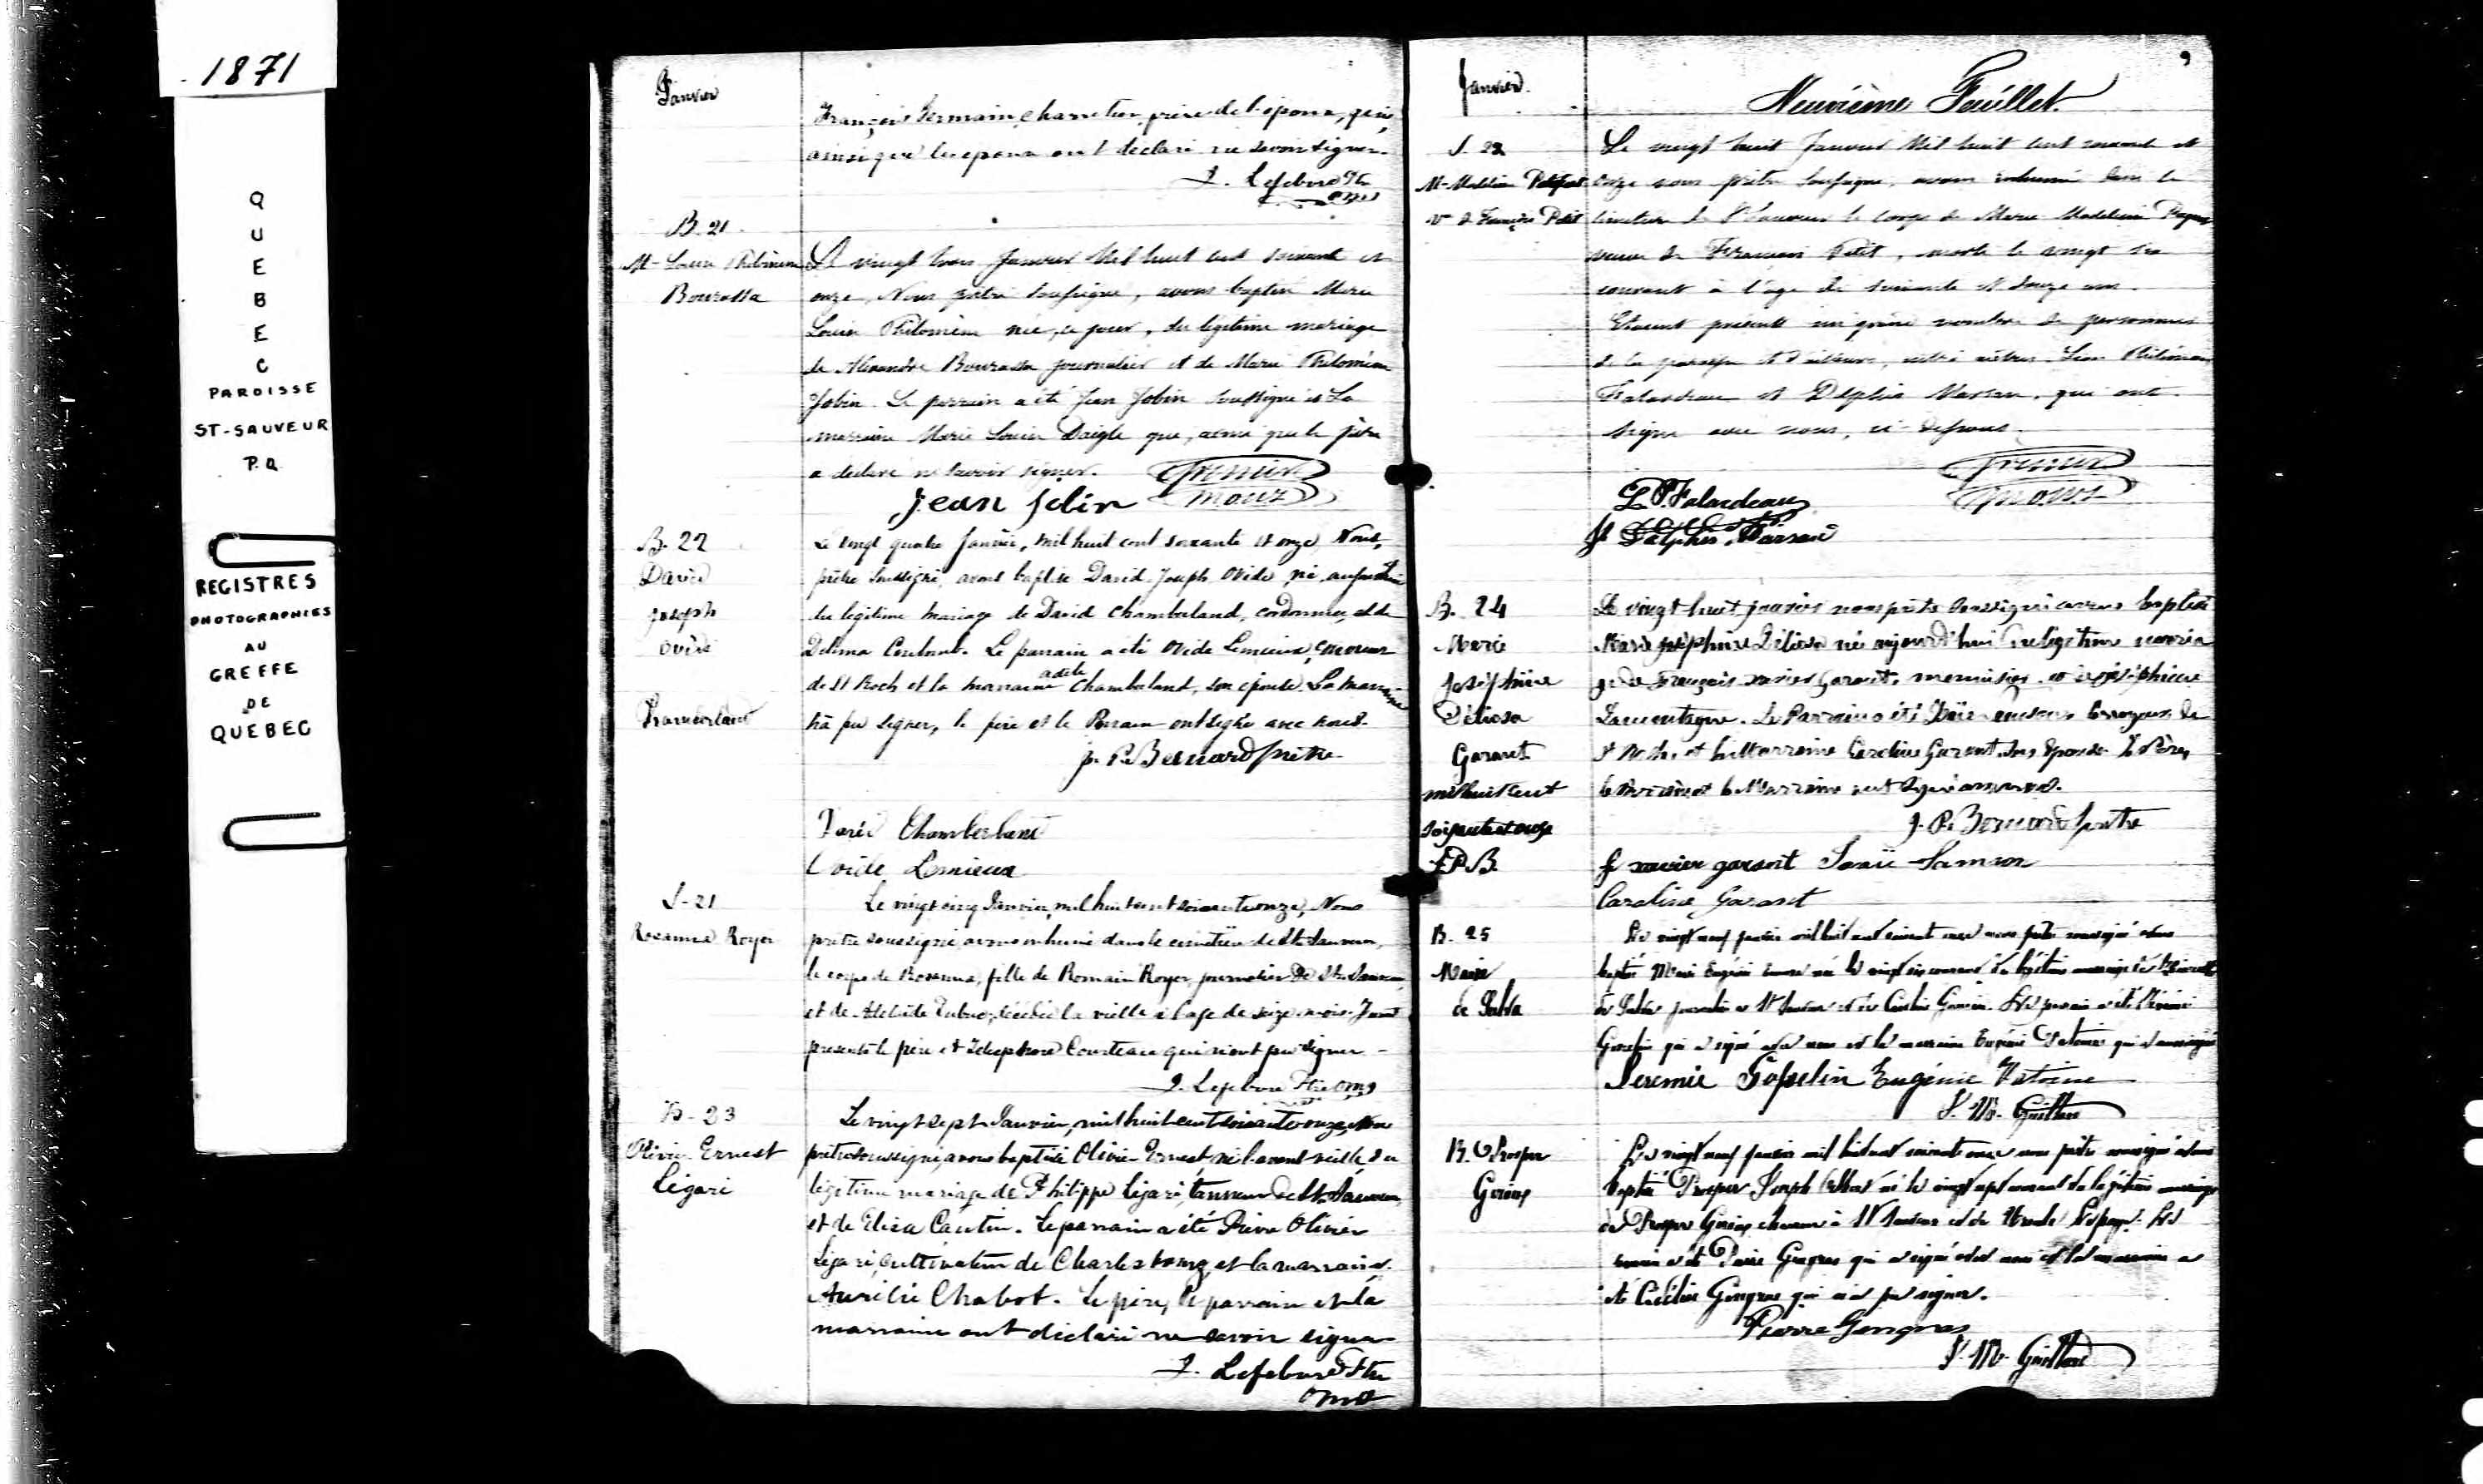 1871
QUEBEC
PAROISSE
ST-SAUVEUR
P.Q.
REGISTRES
PHOTOGRAPHIES
AU
GREFFE
DE
QUEBEC
Janvier
François Germain, charretier, père de l'époux, qui
ainsi que les époux ont déclaré ne savoir signer.
L. Lefebvre Ptre
OMI
B. 21
M- Louise Philomène
Bourassa
Le vingt trois Janvier Mil huit cent soixante et
onze, Nous prêtre soussigné, avons baptisé Marie
Louise Philomène née, ce jour, du légitime mariage
de Alexandre Bourassa journalier et de Marie Philomène
Jobin. Le parrain a été Jean Jobin soussigné et La
marraine Marie Louise Daigle qui, ainsi que le père
a déclaré ne savoir signer.
Jean Jobin
B. 22
David
Joseph
Ovide
Chamberland
Le vingt quatre Janvier, mil huit cent soixante et onze Nous,
prêtre soussigné, avons baptisé David Joseph Ovide, né aujourd'hui
du légitime mariage de David Chamberland, cordonnier, et de
Delima . Le parrain a été Ovide Lemieux,
de St Roch et la marraine adèle Chamberland, son épouse. La marraine
n'a pu signer, le père et le Parrain ont signé avec nous.
J. P. Bernard prêtre
David Chamberland
Ovide Lemieux
S-21
Roseanna Royer
Le vingt cinq Janvier, mil huit cent soixante onze, Nous
prêtre soussigné avons inhumé dans le cimetière de St Sauveur,
le corps de Rosanna, fille de Romain Royer, journalier de St Sauveur,
et de Adelaide Dubuc, décédée la veille à l'age de seize mois. Furent
présents le père et Télesphore Couteau qui n'ont pu signer -
L. Lefebvre Ptre OMI
B-23
Olivier Ernest
Légaré
Le vingt sept Janvier, mil huit cent soixante onze, Nous
prêtre soussigné, avons baptisé Olivier Ernest né l'avant veille, du
légitime mariage de Philippe Légaré, tanneur de St Sauveur,
et de Eliza Cantin. Le parrain a été Pierre Olivier
Légaré, cultivateur de Charlesbourg, et la marraine
Aurélie Chabot. Le père, le parrain et la
marraine ont déclaré ne savoir signer
L. Lefebvre Ptre
OMI
Janvier
9
Neuvième Feuillet.
S. 22
M- Madeleine
Ve de François Petit
Le vingt huit Janvier Mil huit cent soixante et
onze nous prêtre soussigné, avons inhumé dans le
cimetière de St Sauveur le corps de Marie Madeleine
veuve de François Petit, morte le vingt six
courant à l'age de soixante et douze ans.
Etaient présents un grand nombre de personnes
de la paroisse et d'ailleurs, entre autres Léon Philémon
Falardeau et Delphis Marsan, qui ont
signé avec nous, ci-dessous.
L. P. Falardeau
Delphis Marsan
B. 24
Marie
Joséphine
Déliosa
Garant
mil huit cent
soixante et onze
J. P. B.
Le vingt huit janvier nous prêtre soussigné avons baptisé
Marie joséphine Déliosa née aujourd'hui du légitime maria
ge de François xavier Garant, menuisier et de joséphine
Lamontagne. Le Parrain a été Samson corroyeur de
St Roch, et la Marraine Caroline Garant son Epouse. Le Père,
le Parrain et la Marraine ont signé avec nous.
J. P. Bernard prêtre
f xavier garant Samson
Caroline Garant
B. 25
Marie
de Salva
Le vingt neuf janvier mil huit cent soixante onze nous prêtre soussigné avons
baptisé Marie Eugénie née le vingt six courant du légitime mariage de
de Salva journalier à St Sauveur et de Caroline . Le parrain a été Jérémie
Gosselin qui a signé avec nous et la marraine Eugénie qui a aussi signé
Jeremie Gosselin Eugénie
B. Prosper
Le vingt neuf janvier mil huit cent soixante onze nous prêtre soussigné avons
baptisé Prosper Joseph né le vingt sept courant du légitime mariage
de Prosper à St Sauveur et de Lespage. Le
parrain a été Pierre Gingras qui a signé avec nous et la marraine a
été Gingras qui n'a pu signer.
Pierre Gengras